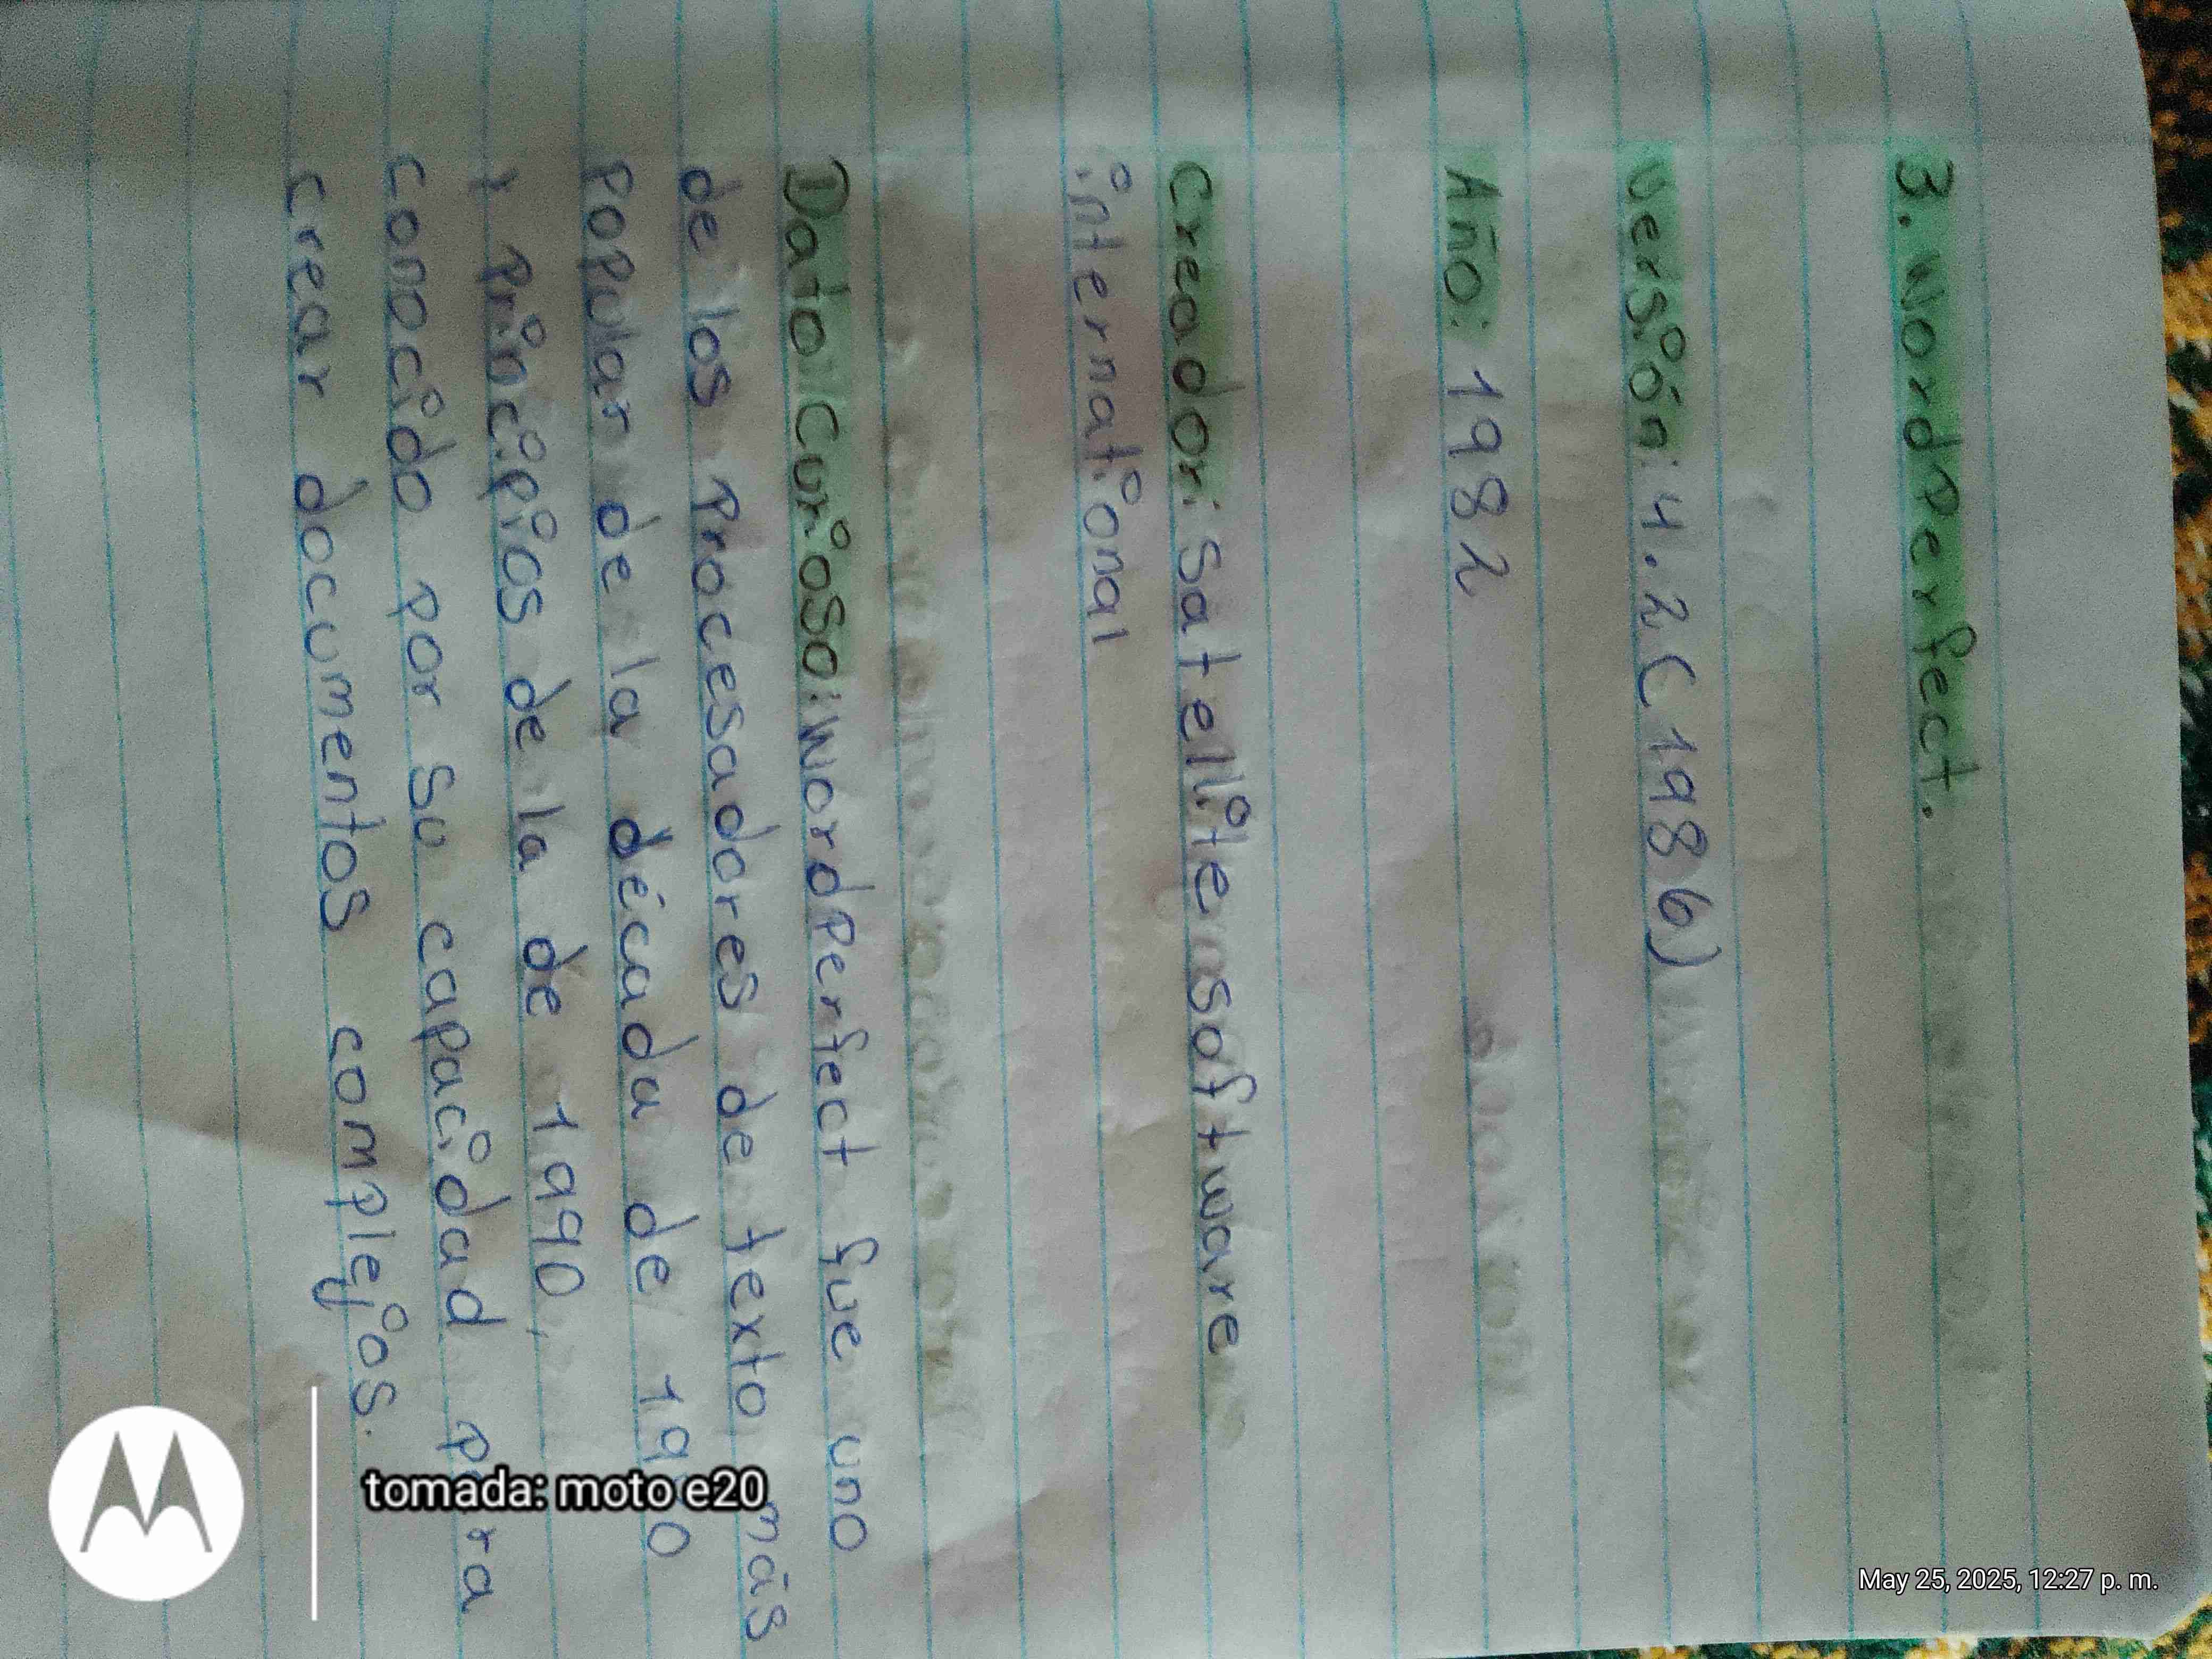 3. WordPerfect.
Versión: 4.2 (1986)
Año: 1982
Creador: Satellite software
international
Dato Curioso: WordPerfect fue uno
de los procesadores de texto más
popular de la década de
y principios de la de 1990,
conocido por su capacidad para
crear documentos complejos.
tomada: moto e20
May 25, 2025, 12:27 p. m.